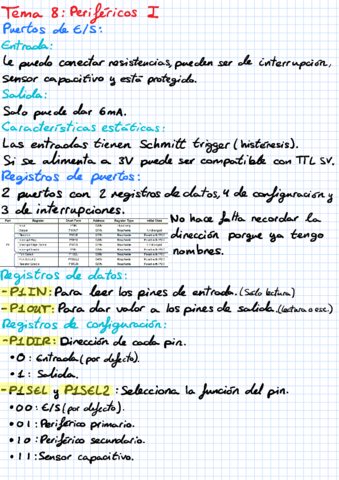 Tema 8: Periféricos I
Puertos de E/S:
Entrada:
Le puedo conectar resistencias, pueden ser de interrupción,
sensor capacitivo y está protegido.
Salida:
Solo puede dar 6mA.
Características estáticas:
Las entradas tienen Schmitt trigger (histéresis).
Si se alimenta a 3V puede ser compatible con TTL 5V.
Registros de puertos:
2 puertos con 2 registros de datos, 4 de configuración y
3 de interrupciones.
No hace falta recordar la
dirección porque ya tengo
nombres.
Registros de datos:
- P1IN: Para leer los pines de entrada. (Solo lectura)
- P1OUT: Para dar valor a los pines de salida. (lectura o esc.)
Registros de configuración:
- P1DIR: Dirección de cada pin.
• 0: Entrada (por defecto).
• 1: Salida.
- P1SEL y P1SEL2: Selecciona la función del pin.
• 00: E/S (por defecto).
• 01: Periférico primario.
• 10: Periférico secundario.
• 11: Sensor capacitivo.